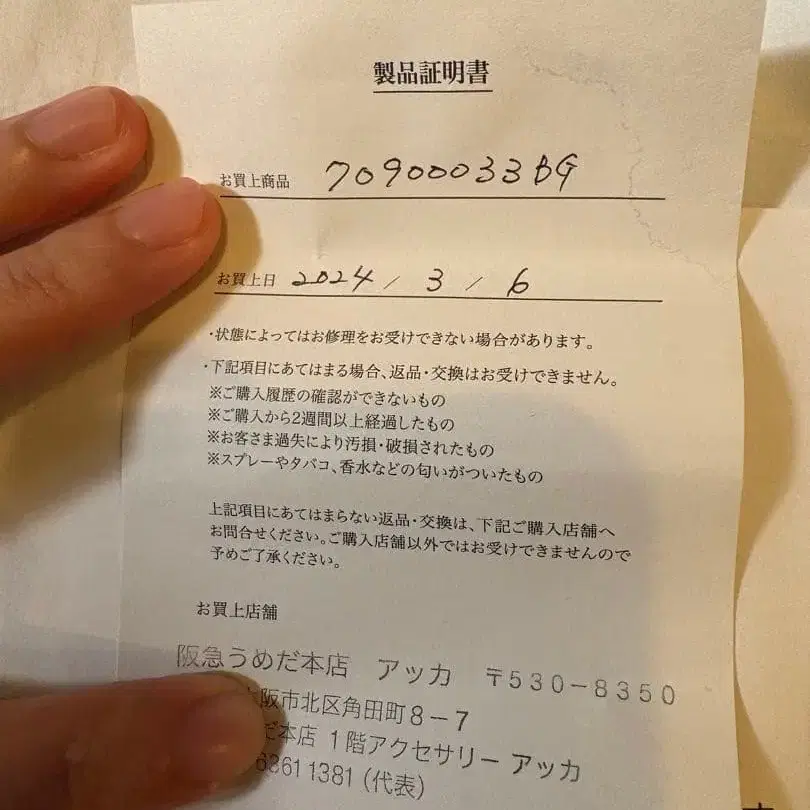 製品証明書
お買上商品 70900033BG
お買上日 2024 / 3 / 6
・状態によってはお修理をお受けできない場合があります。
・下記項目にあてはまる場合、返品・交換はお受けできません。
※ご購入履歴の確認ができないもの
※ご購入から2週間以上経過したもの
※お客さま過失により汚損・破損されたもの
※スプレーやタバコ、香水などの匂いがついたもの
上記項目にあてはまらない返品・交換は、下記ご購入店舗へ
お問合せください。ご購入店舗以外ではお受けできませんので
予めご了承ください。
お買上店舗
阪急うめだ本店 アッカ 〒530-8350
大阪市北区角田町8-7
だ本店 1階アクセサリー アッカ
63611381(代表)